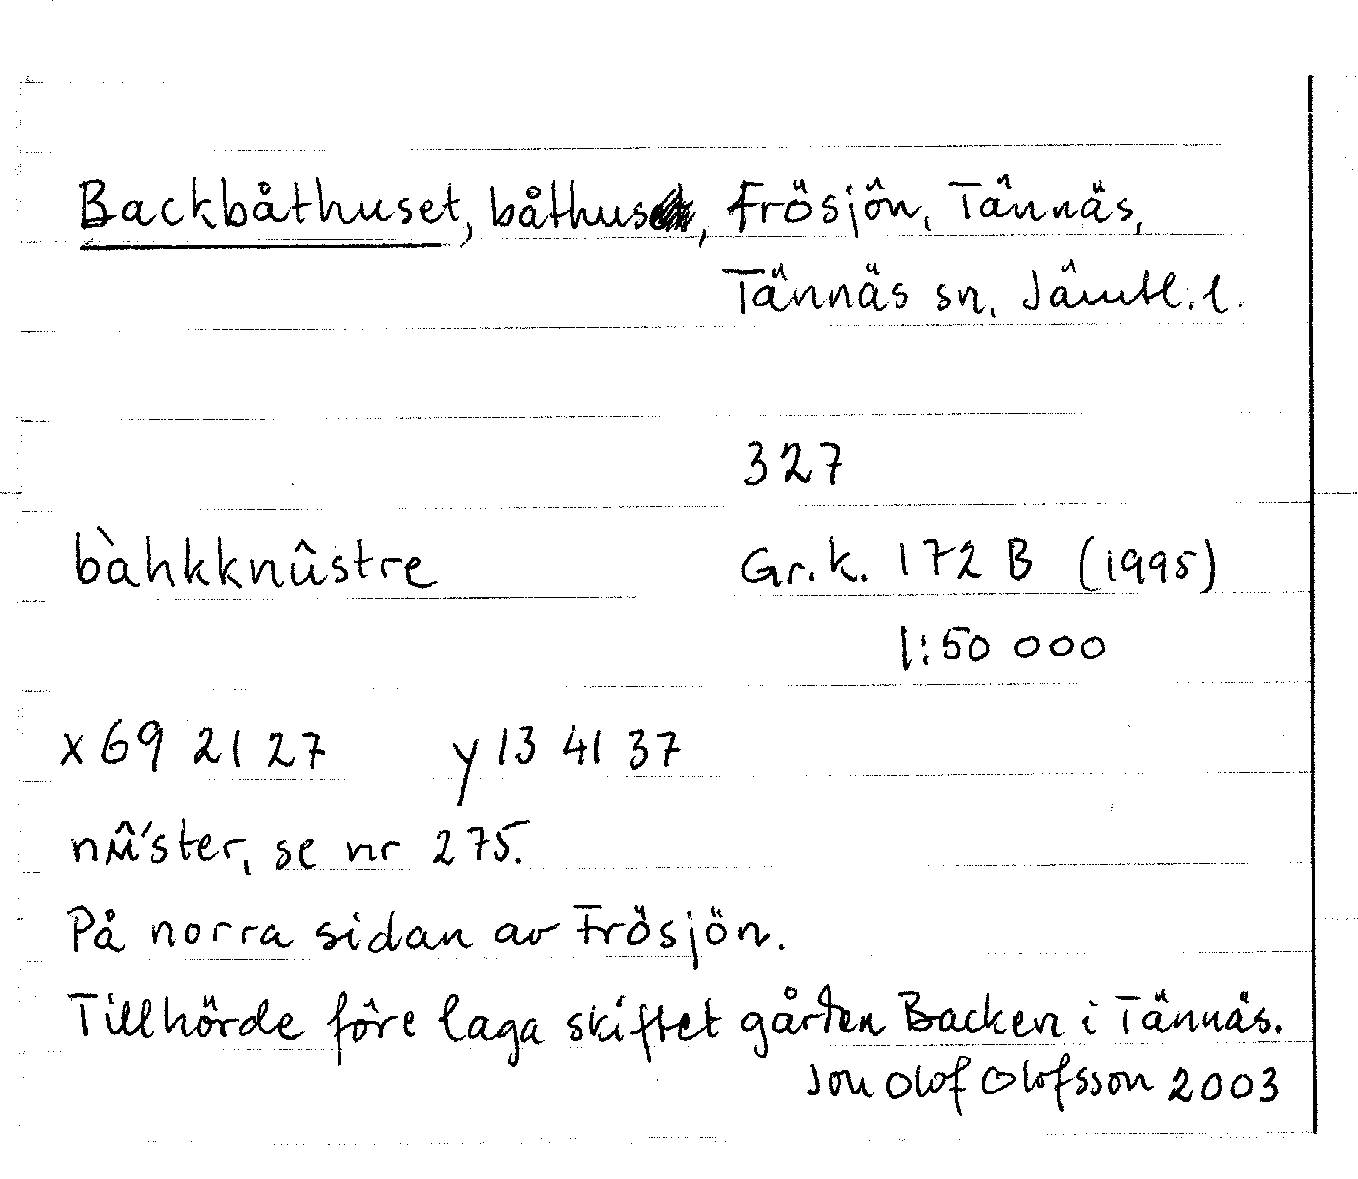 Backbåthuset, båthus, Frösjön, Tännäs,
Tännäs sn, Jämtl. l.
327
bàhkknûstre Gr.k. 172 B (1995)
1:50 000
x 69 21 27 y 13 41 37
nû'ster, se nr 275.
På norra sidan av Frösjön.
Tillhörde före laga skiftet gården Backen i Tännäs.
Jon Olof Olofsson 2003